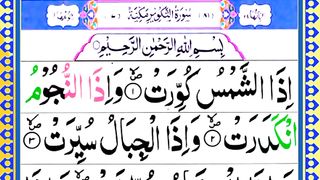 سُوْرَةُ التَّكْوِيْرِ مَكِّيَّةٌ
بِسْمِ اللّٰهِ الرَّحْمٰنِ الرَّحِيْمِ
اِذَا الشَّمْسُ كُوِّرَتْ ۝١ وَاِذَا النُّجُوْمُ
انْكَدَرَتْ ۝٢ وَاِذَا الْجِبَالُ سُيِّرَتْ ۝٣